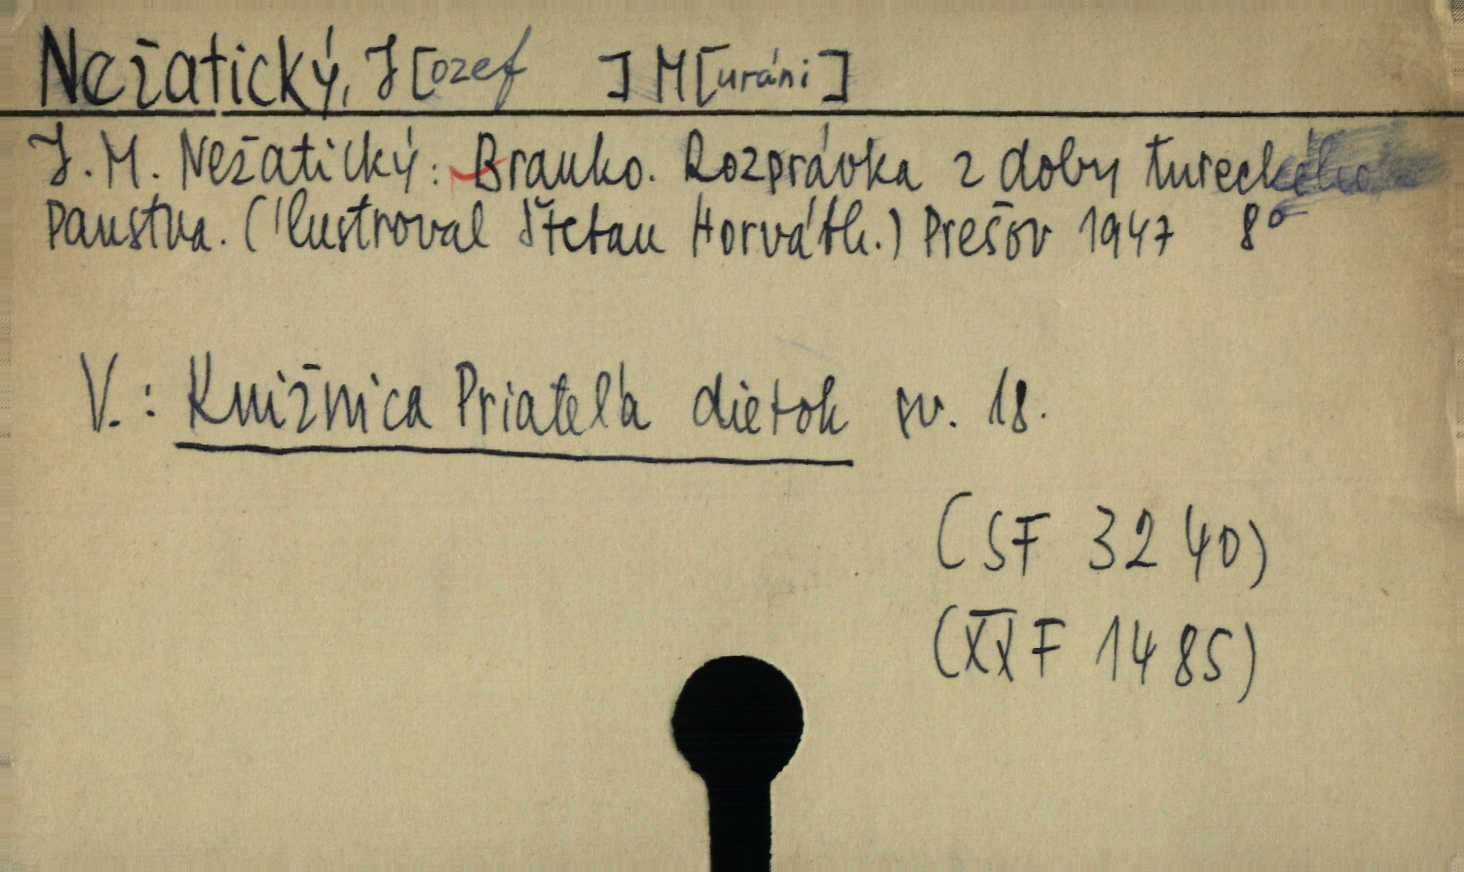 Nežatický, J[ozef ] M[uráni]
J. M. Nežatický: Branko. Rozprávka z doby tureckého
panstva. (Ilustroval Štefan Horváth.) Prešov 1947 8°
V.: Knižnica Priateľa dietok sv. 18.
(SF 3240)
(XX F 1485)